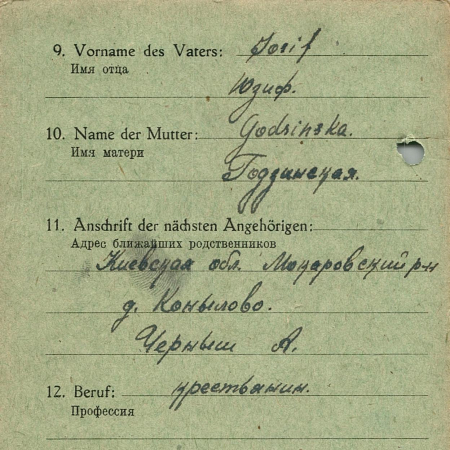 9. Vorname des Vaters: Josif
Имя отца
Юзиф.
10. Name der Mutter: Godzinska.
Имя матери
Годзинская.
11. Anschrift der nächsten Angehörigen:
Адрес ближайших родственников
Киевская обл. Макаровский р-н
д. Копылово.
Черныш А.
12. Beruf: крестьянин.
Профессия